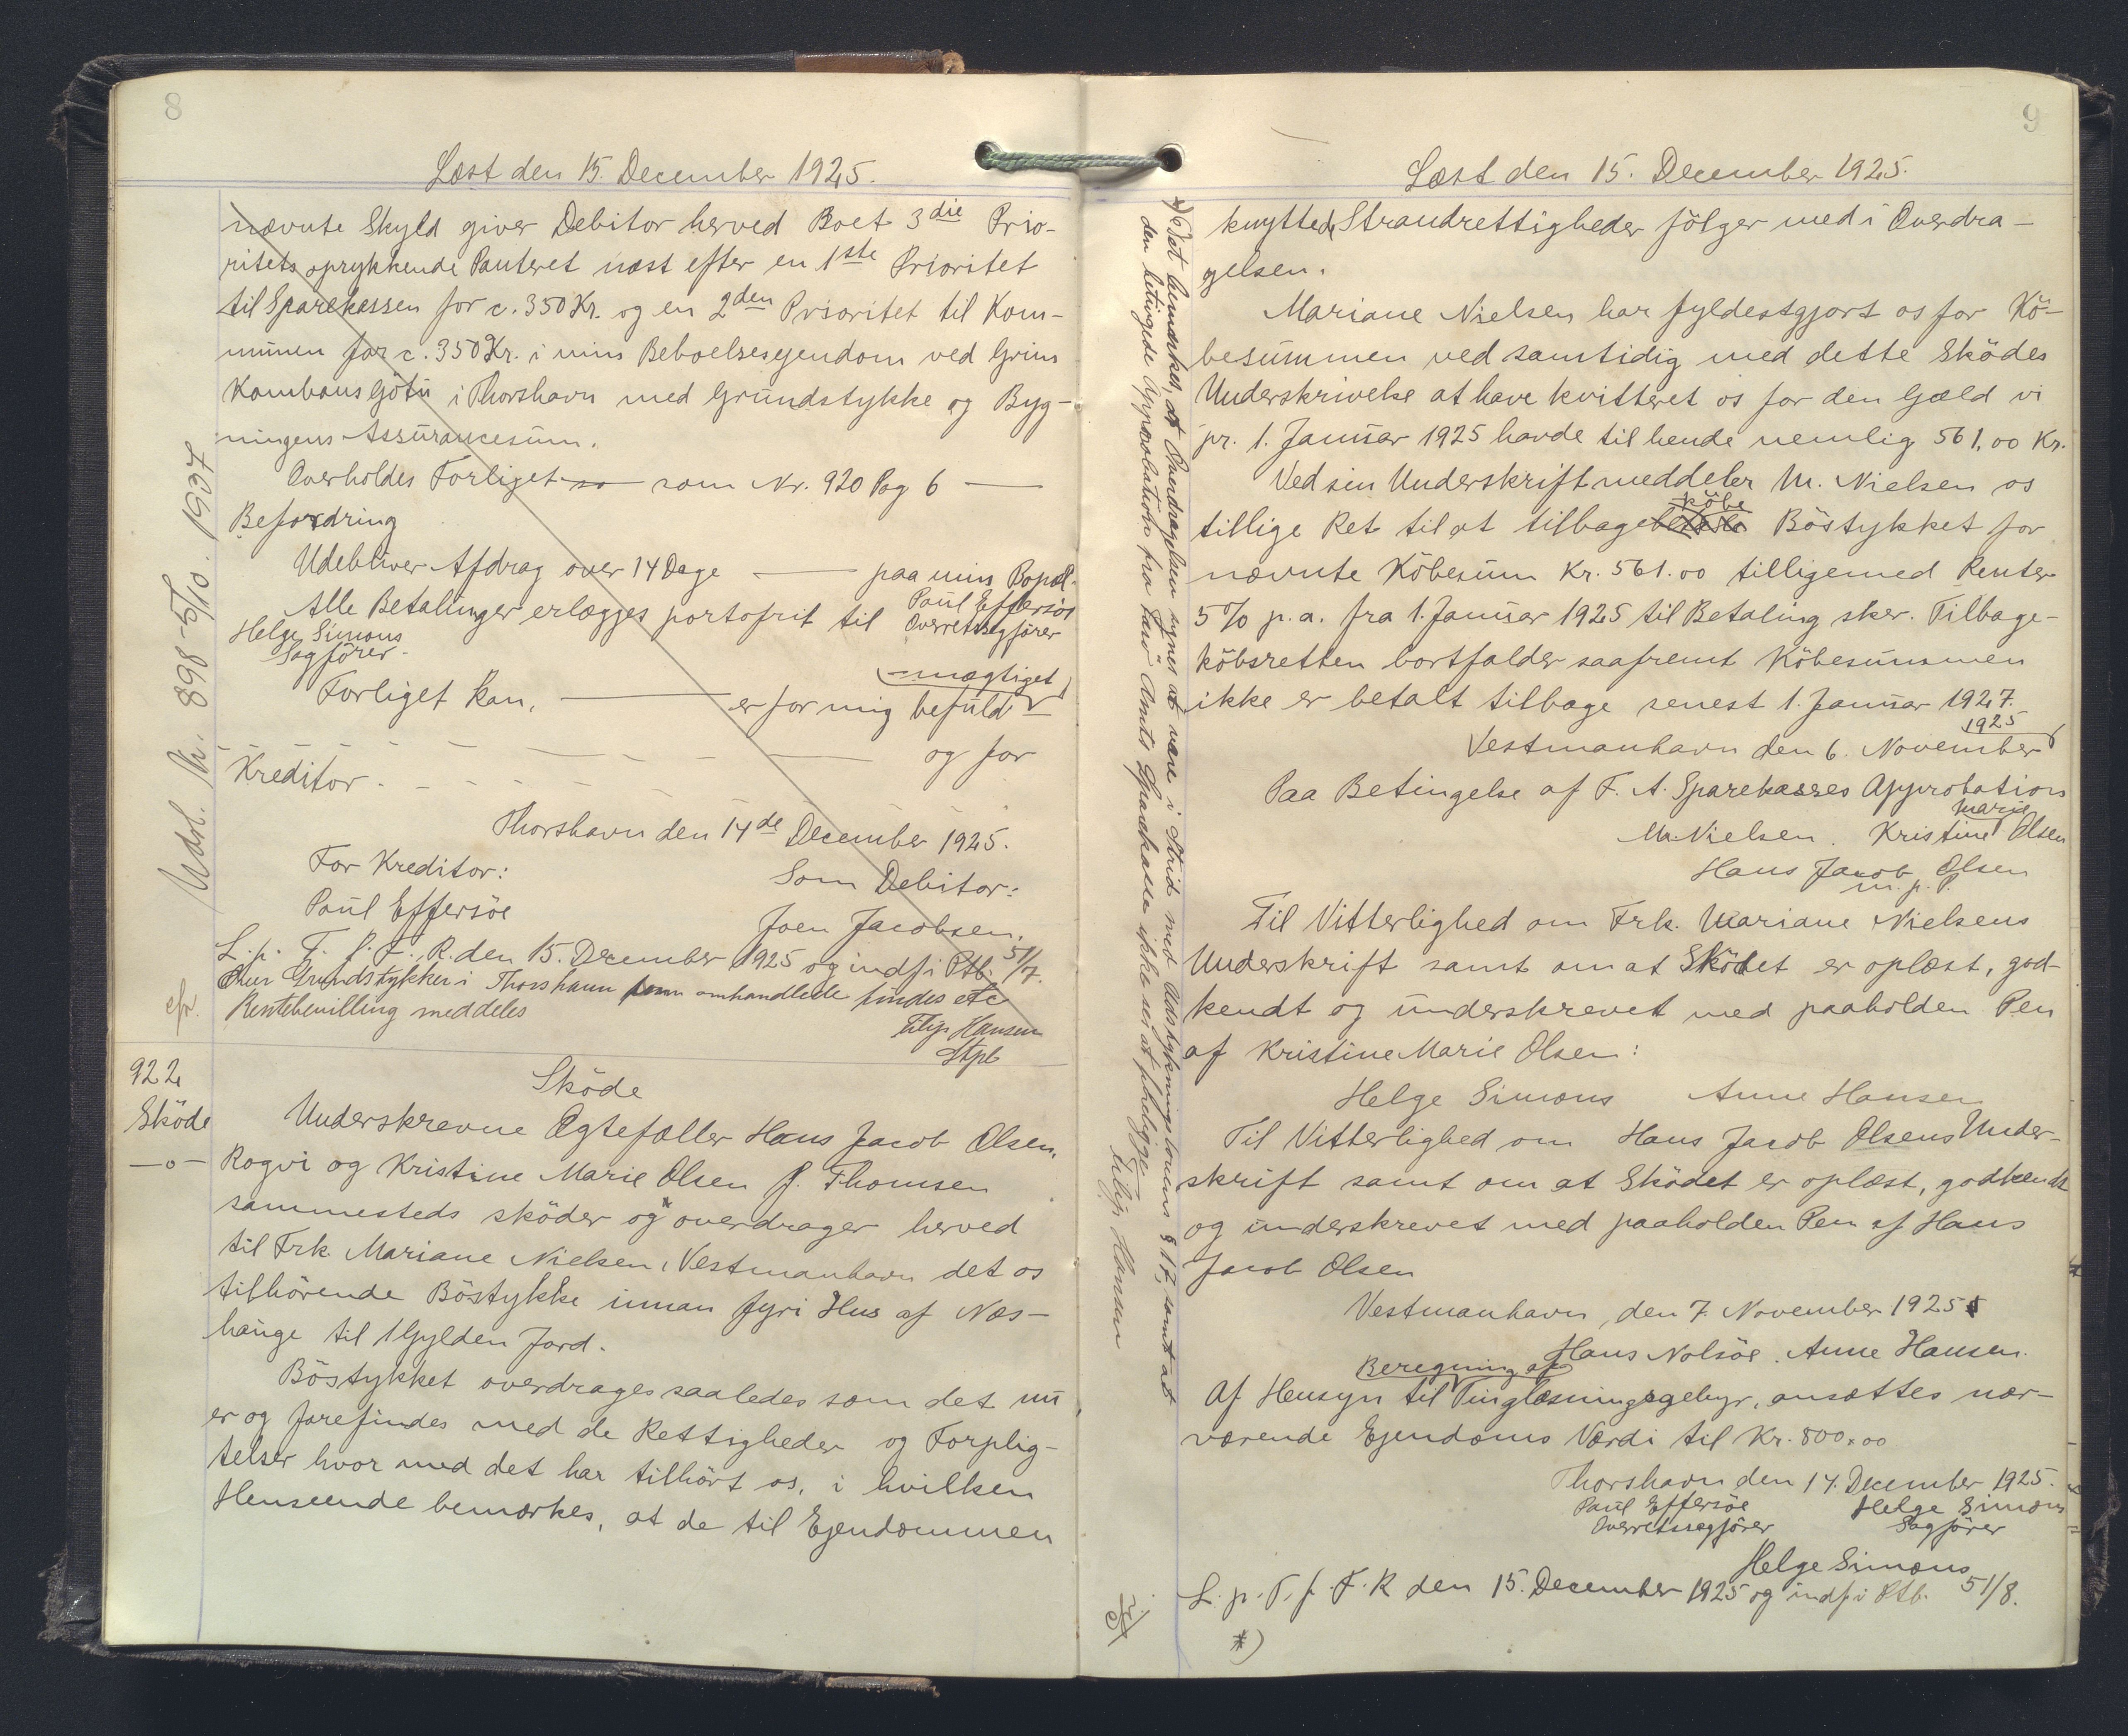 8
Læst den 15. December 1925.
nævnte Skyld giver Debitor herved Boet 3die Prio-
ritets oprykkende Panteret næst efter en 1ste Prioritet
til Sparekassen for c. 350 Kr. og en 2den Prioritet til Kom-
munen for c. 350 Kr. i min Beboelsesejendom ved Grim
Kambans Götu i Thorshavn med Grundstykke og Byg-
ningens Assurancesum.
Overholdes Forliget so — som Nr. 920 Pag 6 —
Befordring
Udebliver Afdrag over 14 Dage — paa min Bopæl.
Alle Betalinger erlægges portofrit til Paul Effersöe
Overretssagförer
Helge Simons
Sagförer.
Forliget kan, — er for mig befuld-
mægtiget
— og for
Kreditor. - - - -
Thorshavn den 14de December 1925.
For Kreditor: Som Debitor:
Paul Effersöe Joen Jacobsen.
L. p. T. f. F. R. den 15. December 1925 og indf i Ptb. 51/7.
Grundstykker i Thorshavn omhandlede findes etc
Rentebevilling meddeles
Filip Hansen
Stpb
Udsl. Nr. 898 - 5/10. 1937
cfr.
922
Sköde
—o—
Sköde
Underskrevne Ægtefæller Hans Jacob Olsen,
Kogvi og Kristine Marie Olsen f. Thomsen
sammesteds sköder og* overdrager herved
til Frk. Mariane Nielsen, Vestmanhavn det os
tilhörende Böstykke innan fyri Hus af Næs-
hauge til 1 Gylden Jord.
Böstykket overdrages saaledes som det nu
er og forefindes med de Rettigheder og Forplig-
telser hvor med det har tilhört os, i hvilken
Henseende bemærkes, at de til Ejendommen
9
Læst den 15. December 1925.
knyttede Strandrettigheder fölger med i Overdra-
gelsen.
Mariane Nielsen har fyldestgjort os for Kö-
besummen ved samtidig med dette Sködes
Underskrivelse at have kvitteret os for den Gæld vi
pr. 1. Januar 1925 havde til hende nemlig 561,00 Kr.
Ved sin Underskrift meddeler M. Nielsen os
köbe
tillige Ret til at tilbagebetale Böstykket for
nævnte Köbesum Kr. 561.00 tilligemed Renter
5% p. a. fra 1. Januar 1925 til Betaling sker. Tilbage-
köbsretten bortfalder saafremt Köbesummen
ikke er betalt tilbage senest 1. Januar 1927.
1925
Vestmanhavn den 6. November
Paa Betingelse af F. A. Sparekasses Approbation
Marie
M. Nielsen. Kristine Olsen
Hans Jacob Olsen
m. p. P.
Til Vitterlighed om Frk. Mariane Nielsens
Underskrift samt om at Sködet er oplæst, god-
kendt og underskrevet med paaholden Pen
af Kristine Marie Olsen:
Helge Simons Anne Hansen
Til Vitterlighed om Hans Jacob Olsens Under-
skrift samt om at Sködet er oplæst, godkendt
og underskrevet med paaholden Pen af Hans
Jacob Olsen
Vestmanhavn, den 7. November 1925
Hans Nolsöe. Anne Hansen.
Beregning af
Af Hensyn til Tinglæsningsgebyr, ansættes nær-
værende Ejendoms Værdi til Kr. 800,00
Thorshavn den 14. December 1925.
Paul Effersöe Helge Simons
Overretssagförer Sagförer
Helge Simons
L. p. T. f. F. R den 15. December 1925 og indf i Ptb. 51/8.
*)
*) Det bemærkes, at Overdragelsen synes at være i Strid med Udstykningslovens § 17, samt at
den betingede Approbation fra Færö Amts Sparekasse ikke ses at foreligge.
Filip Hansen